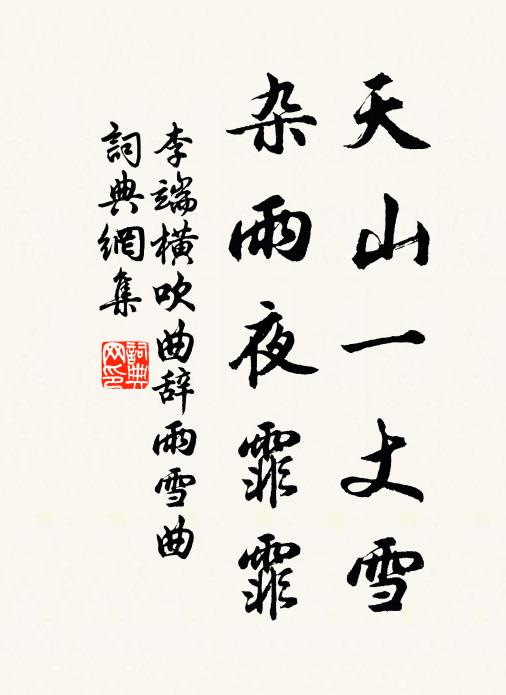 天山一丈雪
杂雨夜霏霏
李端横吹曲辞雨雪曲
詞典網集
詞典网印